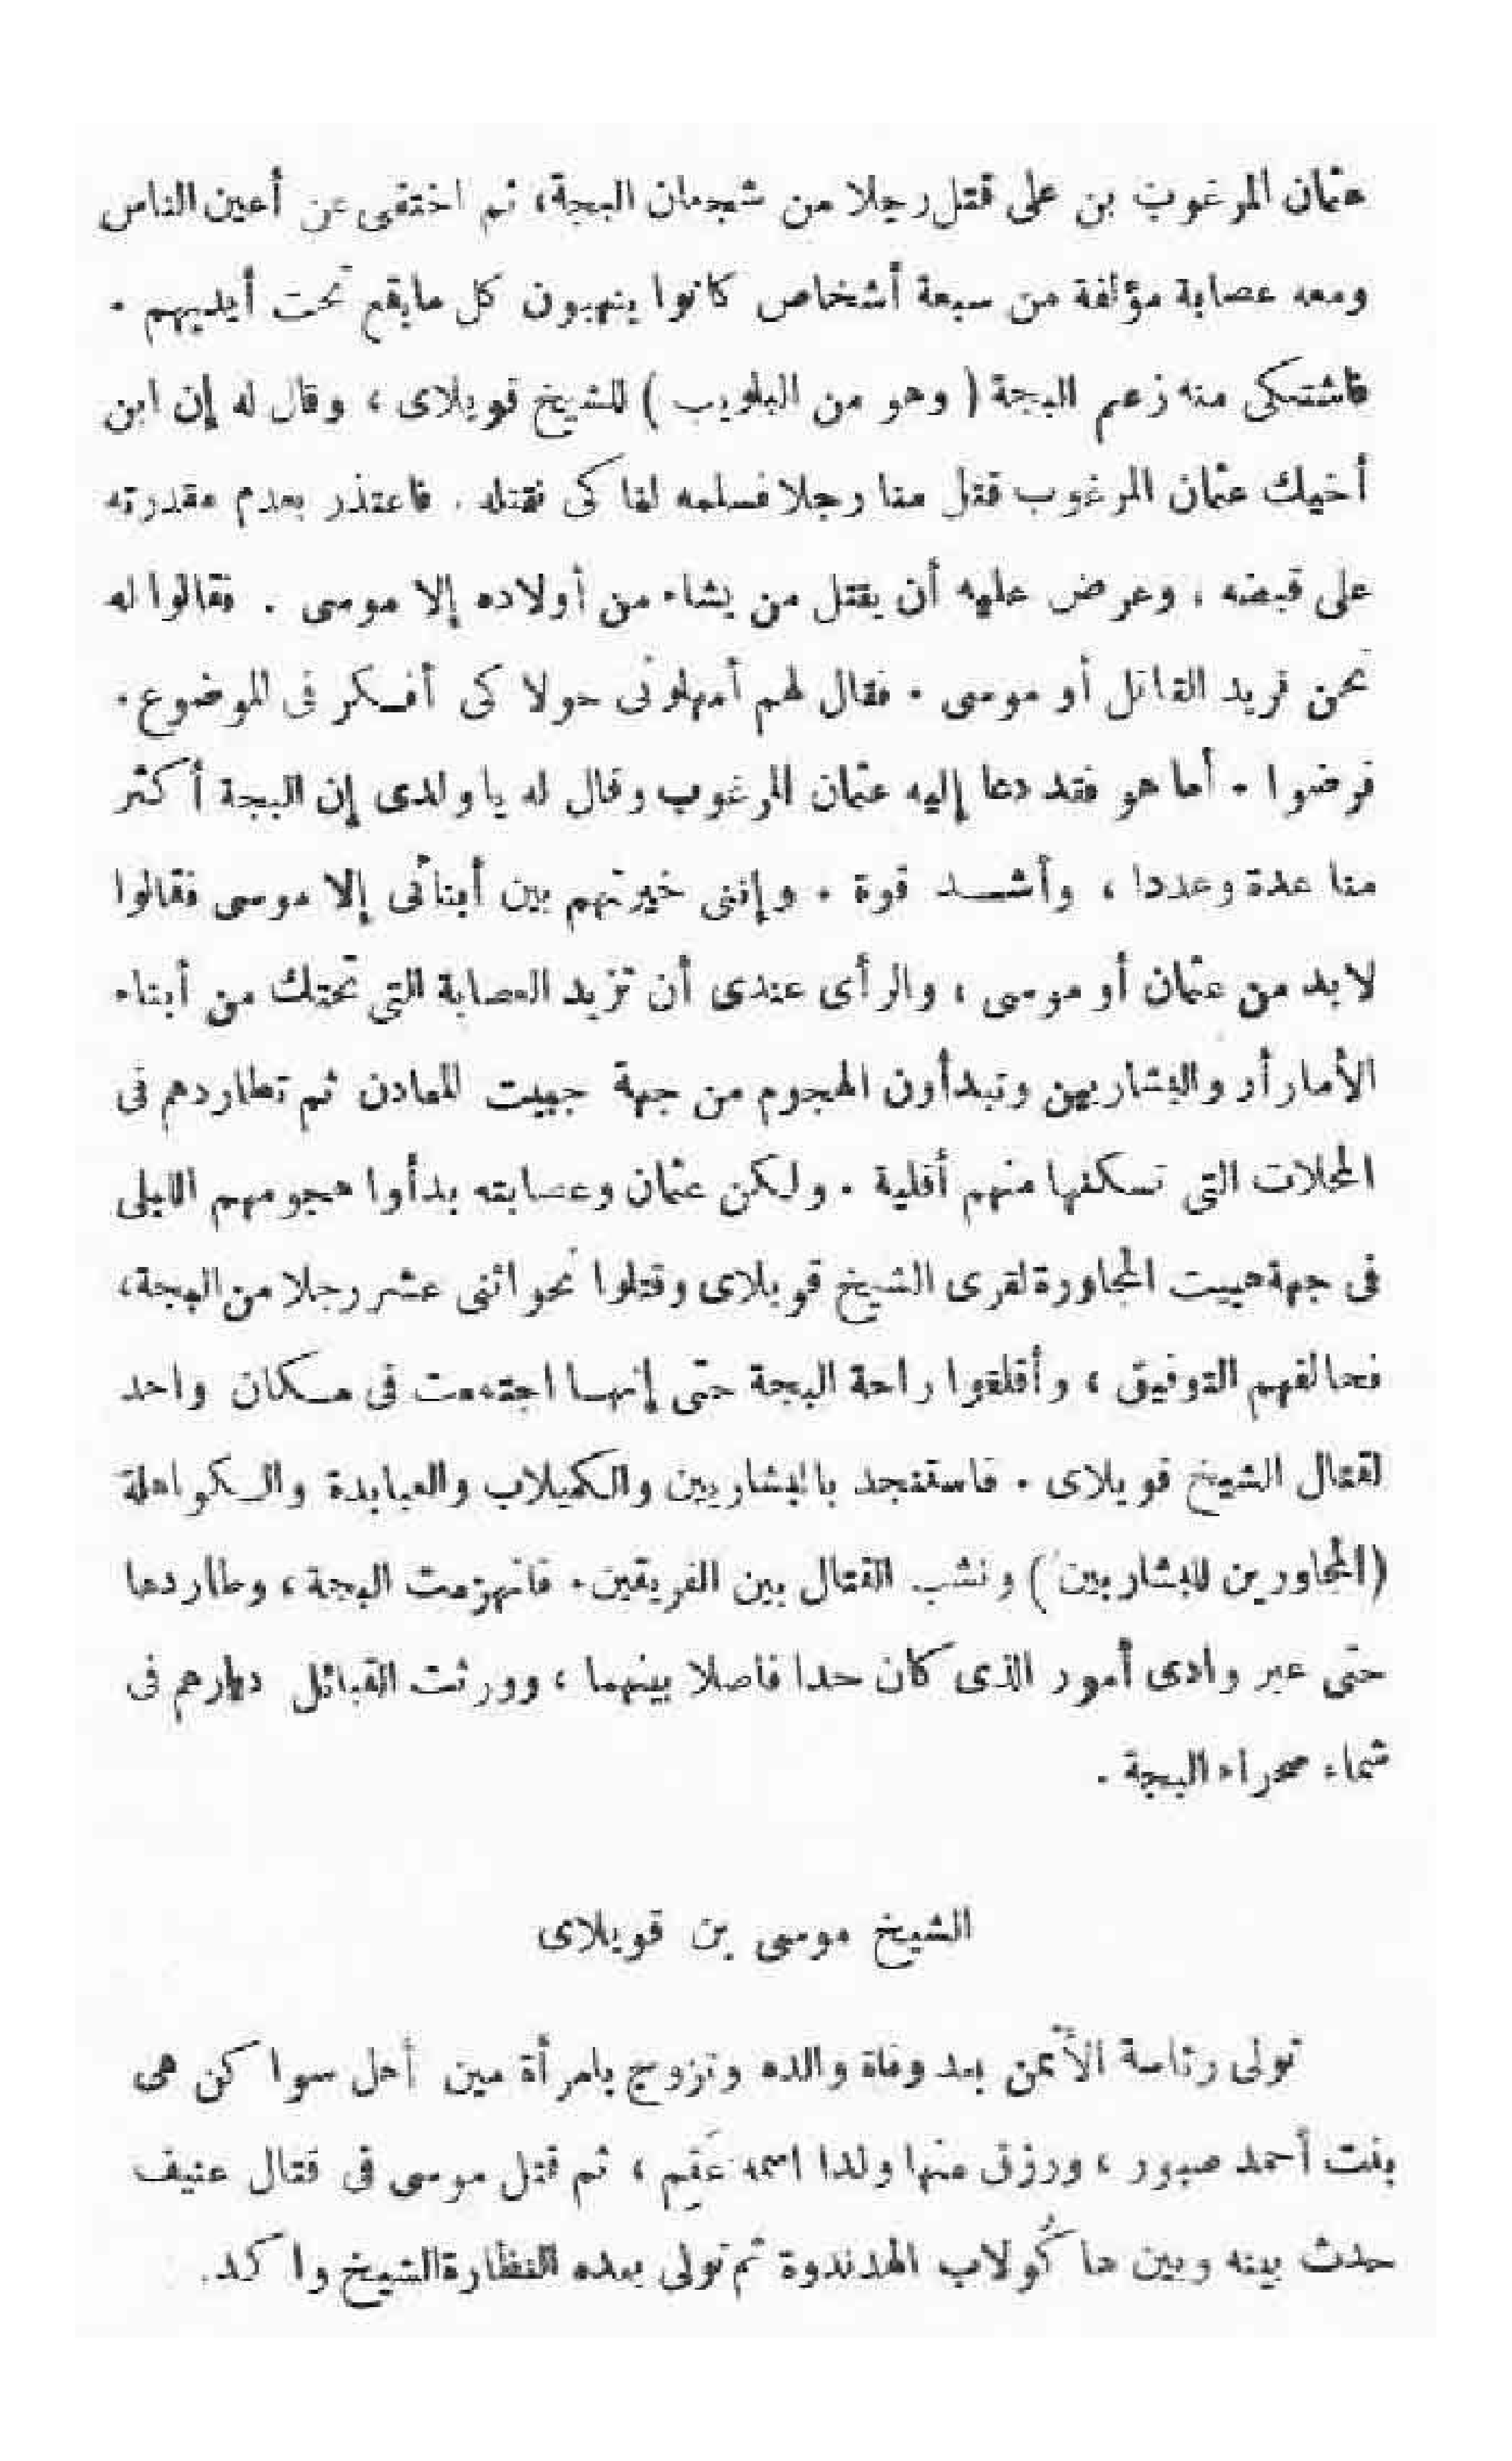 عثمان المرغوب بن على قتل رجلا من شجعان البجة، ثم اختفى عن أعين الناس
ومعه عصابة مؤلفة من سبعة أشخاص كانوا ينهبون كل مايقع تحت أيديهم .
فاشتكى منه زعم البجة ( وهو من البلويب ) للشيخ قويلاى ، وقال له إن ابن
أخيك عثمان المرغوب قتل منا رجلا فسلمه لنا كى نقتله . فاعتذر بعدم مقدرته
على قبضه ، وعرض عليه أن يقتل من يشاء من أولاده إلا موسى . فقالوا له
نحن نريد القاتل أو موسى . فقال لهم أمهلونى حولا كى أفكر فى الموضوع .
فرضوا . أما هو فقد دعا إليه عثمان المرغوب وقال له يا ولدى إن البجة أكثر
منا عدة وعددا ، وأشد قوة . وإننى خيرتهم بين أبنائى إلا موسى فقالوا
لا بد من عثمان أو موسى ، والرأى عندى أن تزيد العصابة التى تحتك من أبناء
الأمارأر والبشاريين وتبدأون الهجوم من جهة جبيت المعادن ثم تطاردهم فى
المحلات التى تسكنها منهم أقلية . ولكن عثمان وعصابته بدأوا هجومهم الليلى
فى جهة هييت المجاورة لقرى الشيخ قويلاى وقتلوا نحو اثنى عشر رجلا من البجة،
فحالفهم التوفيق ، وأقلقوا راحة البجة حتى إنها اجتمعت فى مكان واحد
لقتال الشيخ قويلاى . فاستنجد بالبشاريين والكميلاب والعبابدة والكواهلة
(المجاورين للبشاريين ) ونشب القتال بين الفريقين . فانهزمت البجة ، وطاردها
حتى عبر وادى أمور الذى كان حدا فاصلا بينهما ، وورثت القبائل ديارهم فى
شماء صحراء البجة .
الشيخ موسى بن قويلاى
تولى رئاسة الأتمن بعد وفاة والده وتزوج بامرأة مين أهل سواكن هى
بنت أحمد صبور ، ورزق منها ولدا اسمه عَقِم ، ثم قتل موسى فى قتال عنيف
حدث بينه وبين ها كُولاب الهدندوة ثم تولى بعده النظارة الشيخ واكد.